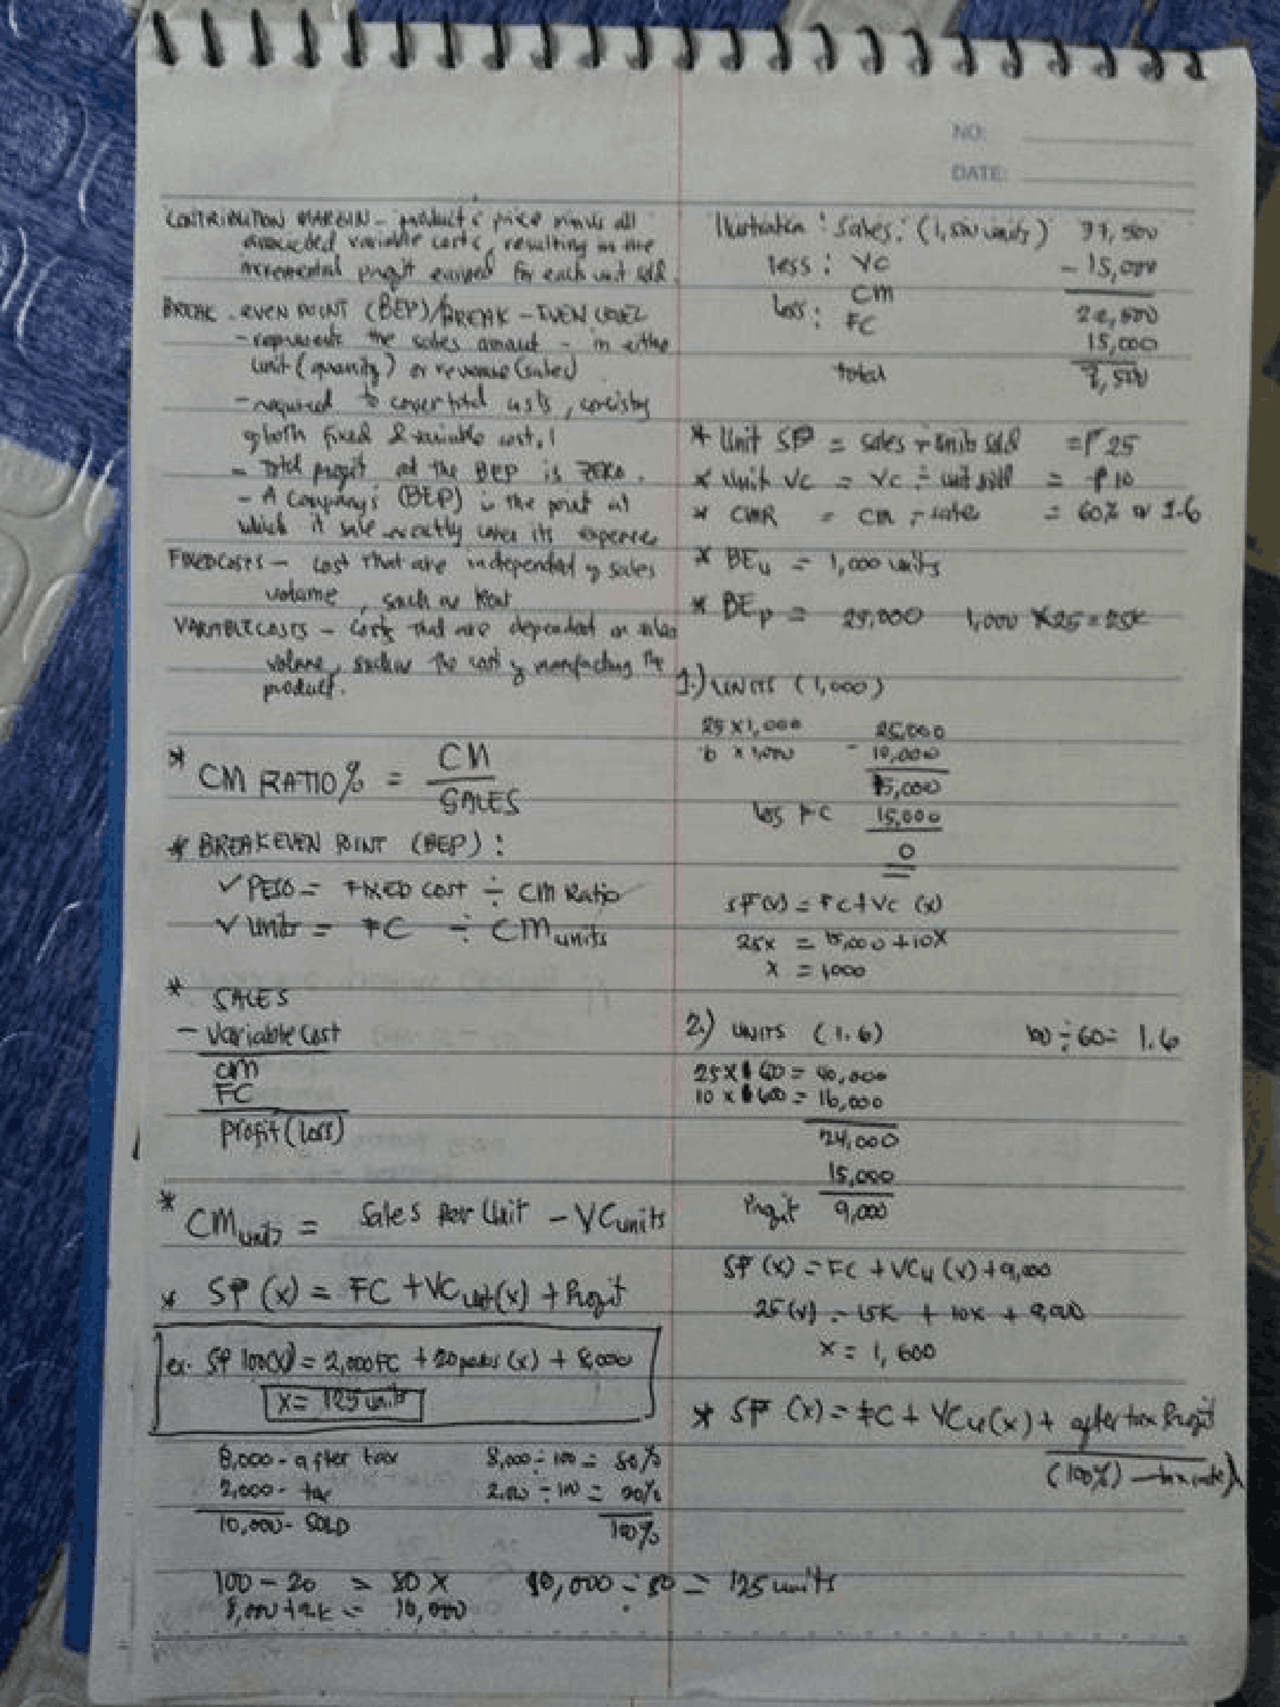 NO:
DATE:
CONTRIBUTION MARGIN - product's price minus all
associated variable costs, resulting in the
incremental profit earned for each unit sold.
BREAK-EVEN POINT (BEP)/BREAK-EVEN LEVEL
- represents the sales amount - in either
unit (quantity) or revenue (sales)
- required to cover total costs, consisting
of both fixed & variable cost.
- Total profit at the BEP is ZERO.
- A Company's (BEP) is the point at
which it sale exactly cover its expenses
FIXED COSTS - cost that are independent of sales
volume, such as Rent
VARIABLE COSTS - costs that are dependent on sales
volume, such as the cost of manufacturing the
product.
* CM RATIO % = CM
SALES
* BREAKEVEN POINT (BEP) :
✓ PESO = FIXED COST ÷ CM Ratio
✓ Units = FC ÷ CM units
* SALES
- Variable Cost
CM
FC
profit (loss)
* CM units = Sales Per Unit - VC units
* SP (x) = FC + VC unit (x) + Profit
ex. SP 100(x) = 2,000 FC + 20 (x) + 8,000
x = 125 units
8,000 - after tax 8,000 ÷ 100 = 80%
2,000 - tax 2,000 ÷ 100 = 20%
10,000 - SOLD 100%
100 - 20 = 80 X 10,000 ÷ 80 = 125 units
8,000 + 2K = 10,000
Illustration : Sales: (1,500 units) 37,500
less : VC - 15,000
CM 22,500
less : FC 15,000
total 7,500
* Unit SP = sales ÷ units sold = ₱ 25
* Unit VC = VC ÷ unit sold = ₱ 10
* CMR = CM ÷ sales = 60% or 1.6
* BEu = 1,000 units
* BEp = 25,000 1,000 x 25 = 25K
1.) UNITS (1,000)
25 x 1,000 25,000
10 x 1,000 - 10,000
15,000
less FC 15,000
0
SP (x) = FC + VC (x)
25x = 15,000 + 10x
x = 1000
2.) UNITS (1.6) 100 ÷ 60 = 1.6
25 x 1600 = 40,000
10 x 1600 = 16,000
24,000
15,000
Profit 9,000
SP (x) = FC + VCu (x) + 9,000
25 (x) = 15K + 10x + 9,000
x = 1,600
* SP (x) = FC + VCu (x) + after tax Profit
(100%) - tax rate)